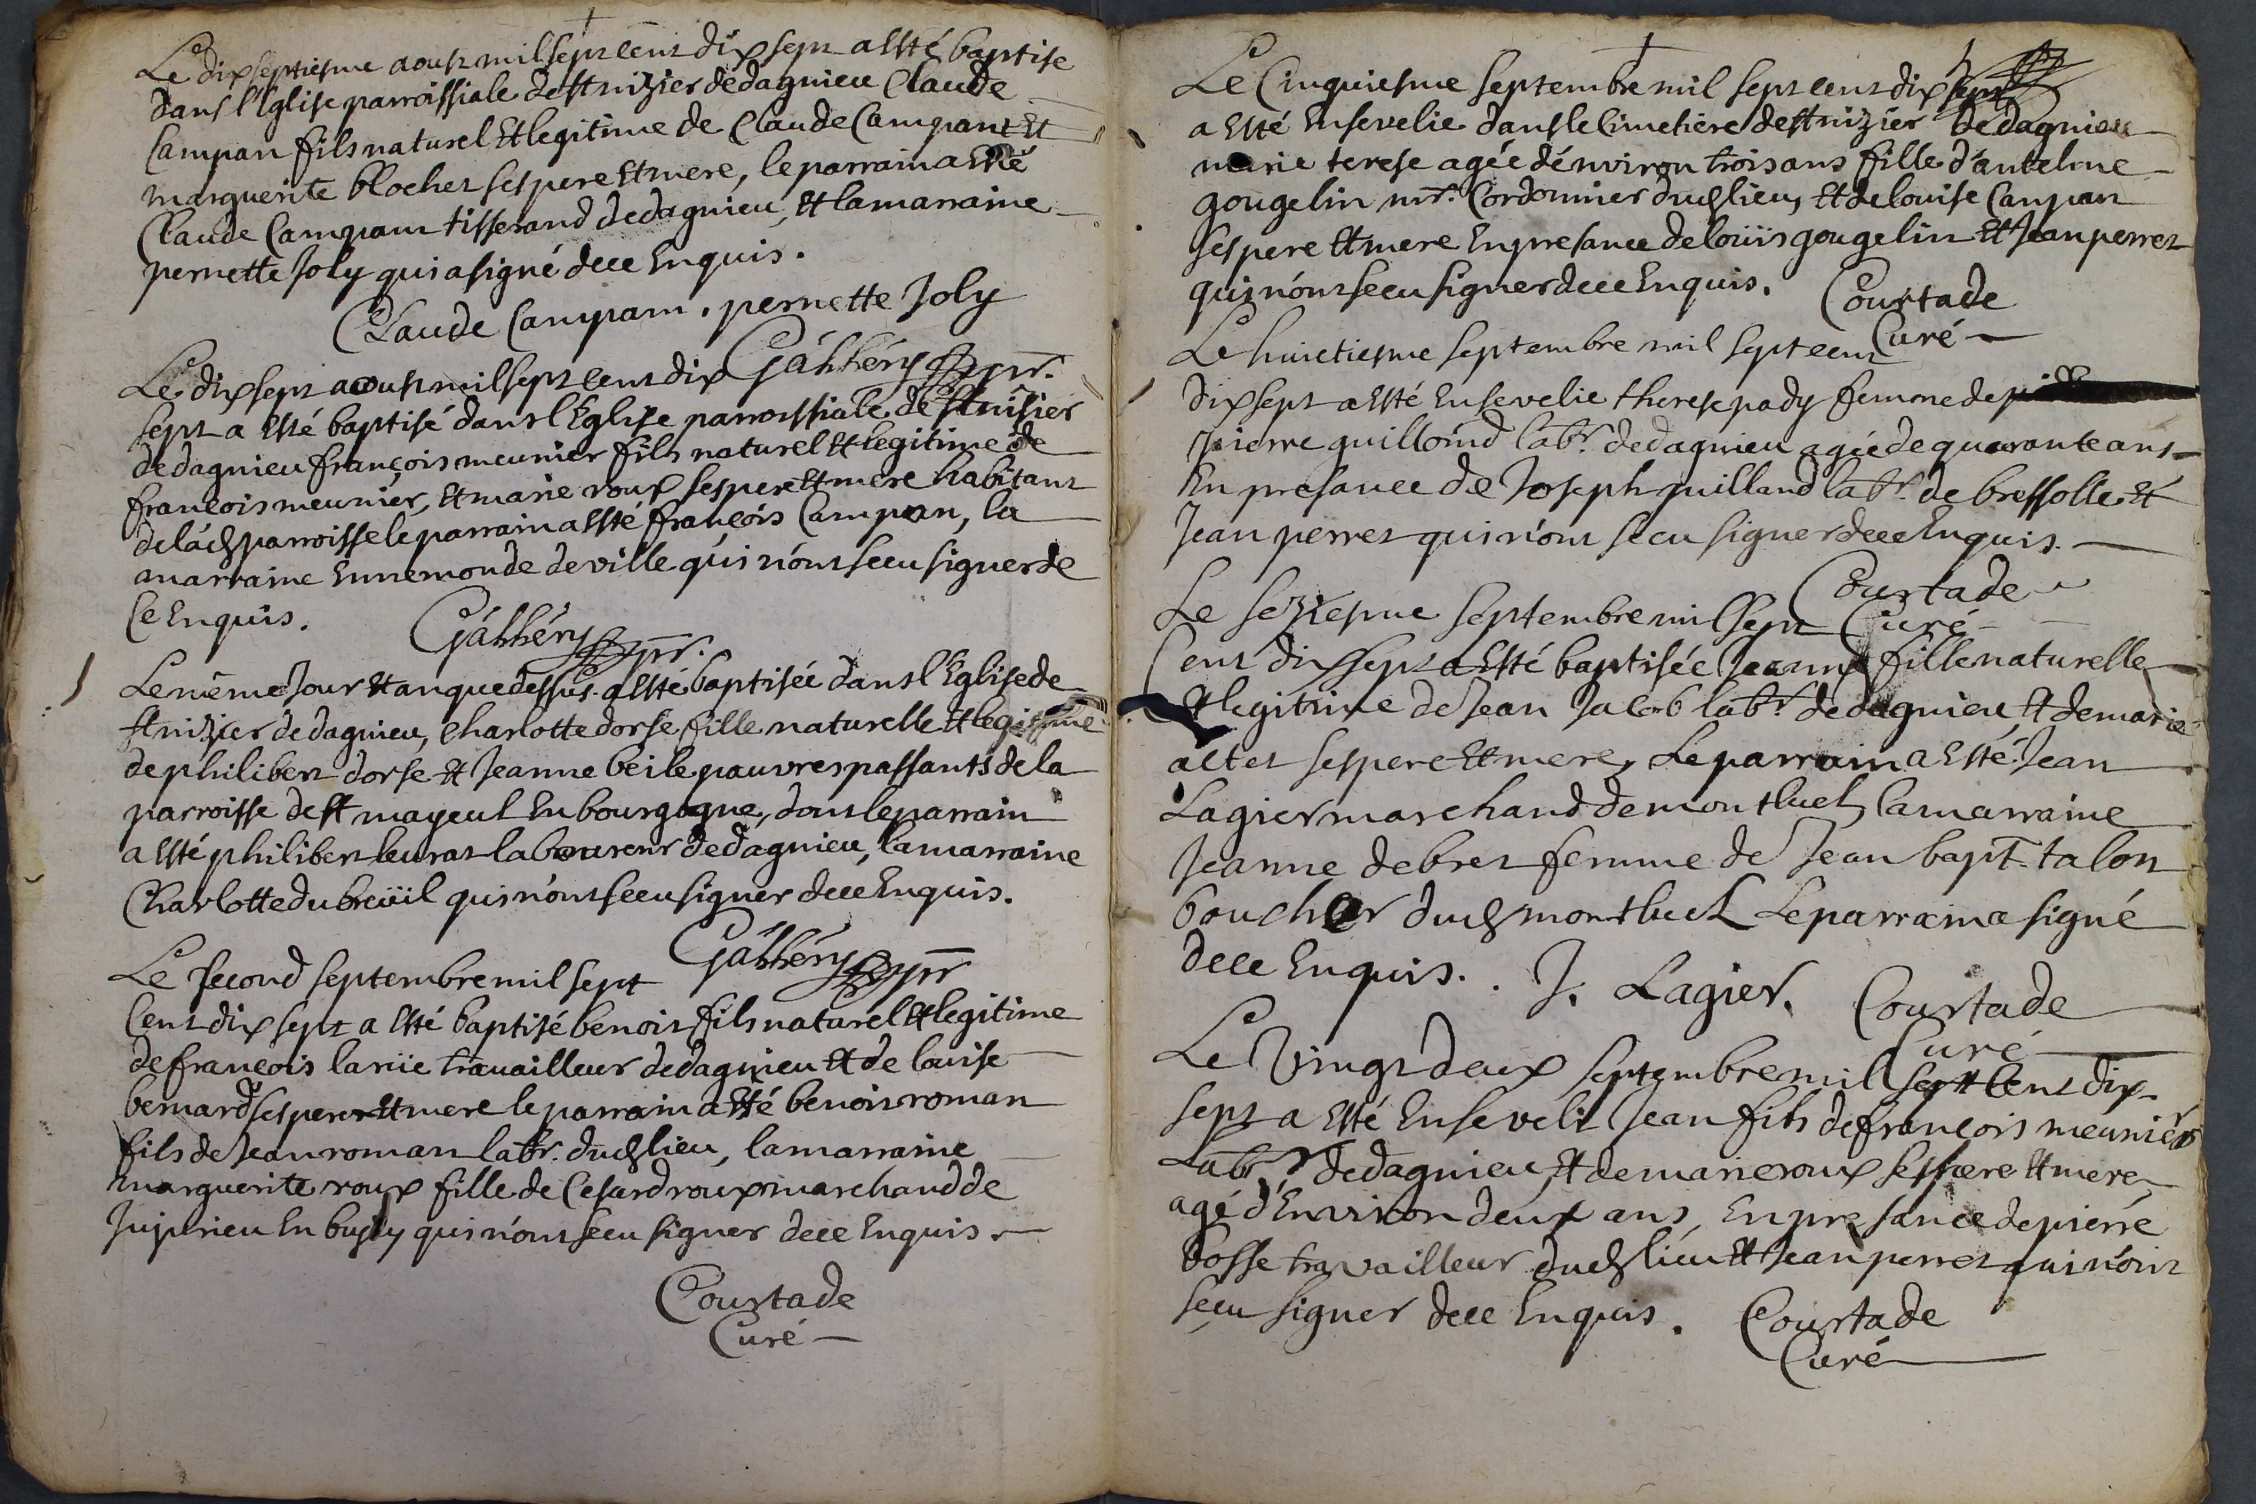 Le dixseptiesme aoust mil sept cent dix sept a esté baptise
dans l'Eglise parroissiale de st nizier de dagnieu Claude
Campan fils naturel et legitime de Claude Campant et
marguerite blochet ses pere et mere, le parrain a esté
Claude Campant tisserand de dagnieu, et la marraine
pernette Joly qui a signé de ce Enquis.
Claude Campam. pernette Joly
Gáhhéry ptr.
Le dix sept aoust mil sept cent dix
sept a esté baptisé dans l'Eglise parroissiale de st nisier
de dagnieu françois meunier fils naturel et legitime de
françois meunier, et marie roux ses pere et mere habitant
de la d parroisse le parrain a esté françois Campan, la
marraine Ennemonde deville qui n'ont sceu signer de
Ce Enquis.
Gáhhéry ptr.
Le même Jour et an que dessus a esté baptisée dans l'Eglise de
st nizier de dagnieu, charlotte dorse fille naturelle et legitime
de philibert dorse et Jeanne beile pauvres passants de la
parroisse de st mayeul En bourgogne, dont le parrain
a esté philibert leurat laboureur de dagnieu, la marraine
Charlotte dubreüil qui n'ont sceu signer de ce Enquis.
Gáhhéry ptr
Le second septembre mil sept
Cent dix sept a esté baptisé benoit fils naturel et legitime
de françois larüe travailleur de dagnieu et de louise
bernard ses perer et mere le parrain a esté benoit roman
fils de Jean roman labr. dud lieu, la marraine
marguerite roux fille de Cesard roux marchand de
Jujurieu En bugey qui n'ont sceu signer de ce Enquis.
Courtade
Curé
Le Cinquiesme septembre mil sept cent dix sept
a esté Ensevelie dans le Cimetiere de st nizier de dagnieu
marie terese agée d'environ trois ans fille d'antelme
gougelin mr. Cordonnier dud lieu, et de louise Canpan
ses pere et mere En presance de loüis gougelin et Jean perret
qui n'ont sceu signer de ce Enquis.
Courtade
Curé
Le huictiesme septembre mil sept cent
dix sept a esté Ensevelie therese pady femme de
pierre guilloind labr. de dagnieu agée de quarante ans
En presance de Joseph guilland labr. de bressolle et
Jean perret qui n'ont sceu signer de ce Enquis.
Courtade
Curé
Le seziesme septembre mil sept
Cent dix sept a esté baptisée Jeanne fille naturelle
et legitime de Jean Jacob labr. de dagnieu et de marie
altet ses pere et mere, Le parrain a esté Jean
Lagier marchand de montluel la marraine
Jeanne debret femme de Jean bapt. talon
boucher dud montluel Le parrain a signé
de ce Enquis. J. Lagier. Courtade
Curé
Le Vingt deux septembre mil sept Cent dix
sept a esté Ensevelit Jean fils de françois meunier
Labr de dagnieu, et de marie roux ses pere et mere
agé d'Environ deux ans, En presance de pierre
bosse travailleur dud lieu et Jean perret qui n'ont
sceu signer de ce Enquis. Courtade
Curé